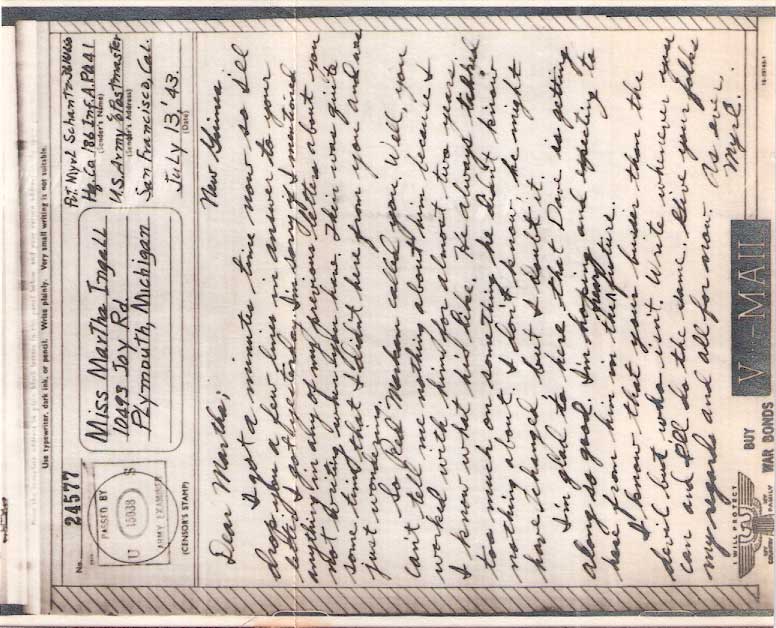 Use typewriter, dark ink, or pencil. Write plainly. Very small writing is not suitable.
No.
24577
PASSED BY
U S
15038
ARMY EXAMINER
(CENSOR'S STAMP)
Miss Martha Ingall
10493 Joy Rd
Plymouth, Michigan
Pvt Myrl Schantz
(Sender's Name)
Hq. Co 186 Inf. A.P.O 41
(Sender's Address)
U.S. Army % Postmaster
San Francisco, Cal.
July 13, '43.
(Date)
New Guinea
Dear Martha;
I got a minutes time now so I'll
drop you a few lines in answer to your
letter I got yesterday. I'm sorry if I mentioned
anything in any of my previous letters about you
not writing when here. There was quite
some time that I didn't here from you and was
just wondering.
So Red Meehan called you. Well, you
can't tell me nothing about him because I
worked with him for almost two years.
I know what he's like. He always talked
too much on something he didn't know
nothing about. I don't know he might
have changed but I doubt it.
I'm glad to here that Dave is getting
along so good. I'm hoping and expecting to
here from him in the near future.
I know that your busier than the
devil but who isn't. Write whenever you
can and I'll do the same. Give your folks
my regards and all for now.
As ever
Myrl.
I WILL PROTECT
MY COUNTRY
MY FAMILY
BUY
WAR BONDS
V···—MAIL